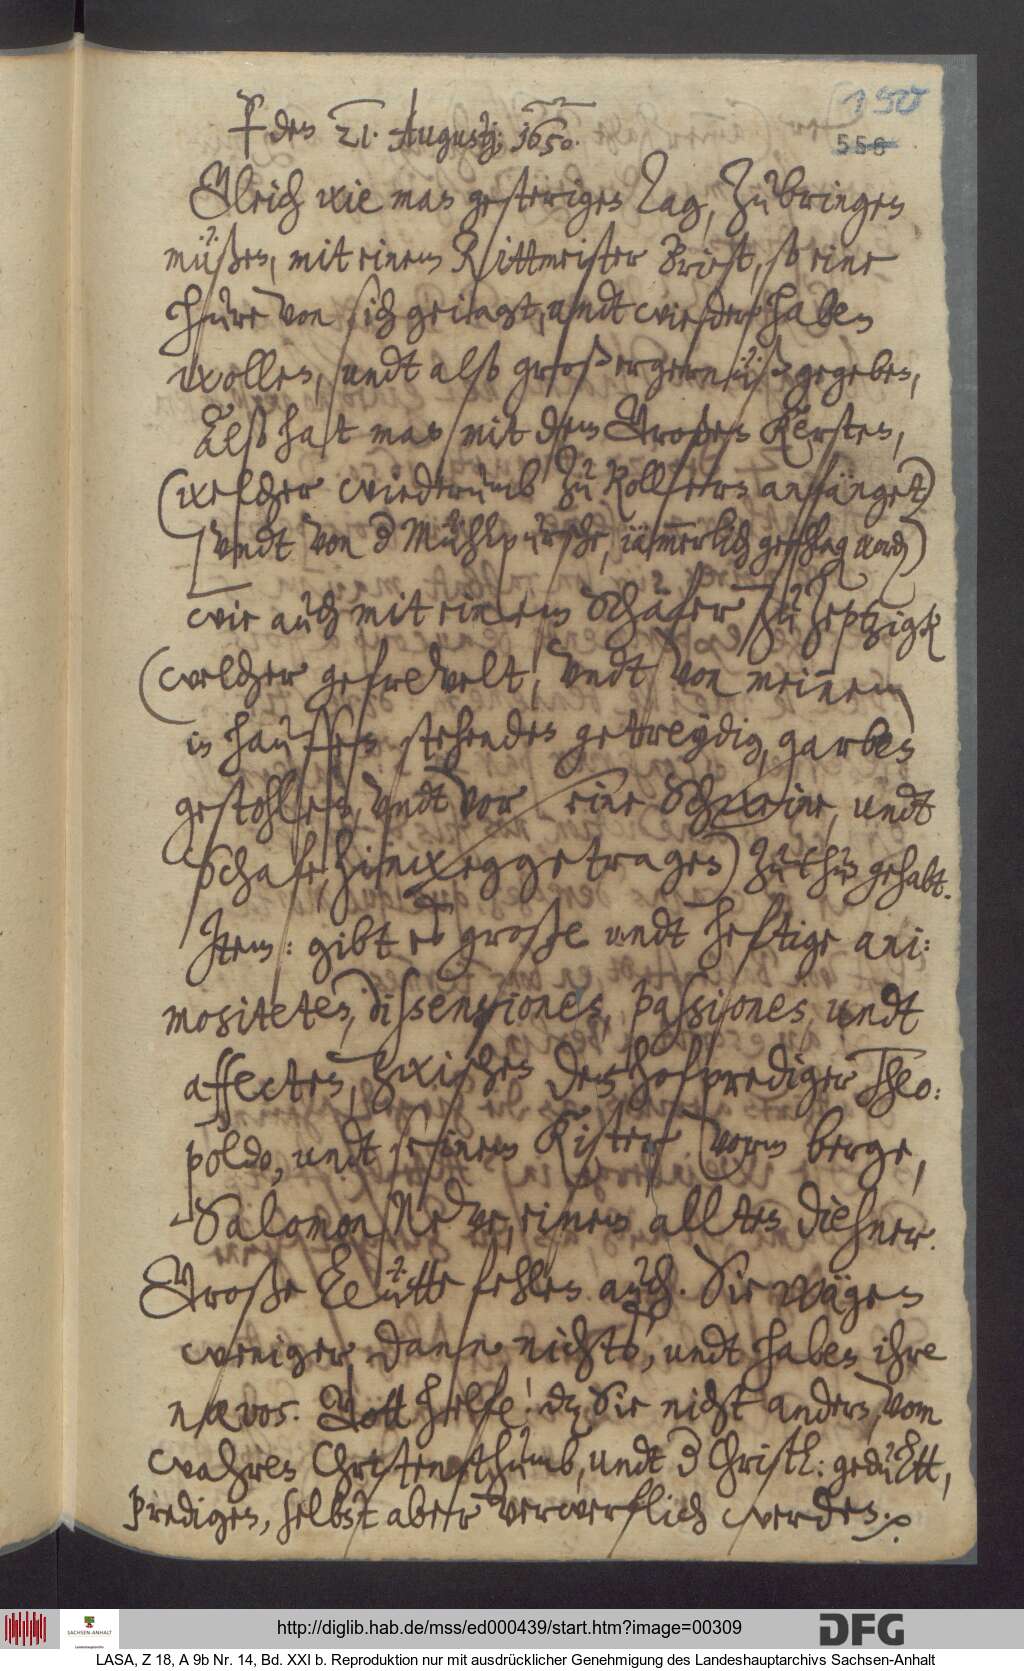 150
558
den 21. Augustj: 1650.
Gleich wie man gesteriges Tag, zubringen
müßen, mit einem Rittmeister Briest, so eine
hure von sich geiagt, undt wieder haben
wollen, undt alß groß ergernüß gegeben,
Alß hat man mit dem Großen Kersten,
(welcher wiederumb zu Kollern anfänget)
undt von d Mühlpursche, iäm̅erlich geschlag worden)
wie auch mit einem Schäfer zu Zeptzigk
(welcher gefrevelt, undt von meinem
in hauffen stehenden getreydig, garben
gestohlen, undt vor seine Schweine, undt
Schafe, hinweggetragen) zu thun gehabt.
Jtem: gibt es große undt heftige ani:
mositeten, dissensiones, passiones, undt
affecten, zwischen dem hofprediger Theo:
poldo, undt seinem Küster vorm berge,
Salomon Neve, einem allten diehner.
Große Leütte fehlen auch. Sie wägen
weniger dann nichts, undt haben ihre
nævos. Gott helfe! dz Sie nicht anders, vom
wahren Christenthumb, undt d Christl: gedultt,
predigen, selbst aber verwerflich werden.
http://diglib.hab.de/mss/ed000439/start.htm?image=00309
SACHSEN-ANHALT
DFG
LASA, Z 18, A 9b Nr. 14, Bd. XXI b. Reproduktion nur mit ausdrücklicher Genehmigung des Landeshauptarchivs Sachsen-Anhalt